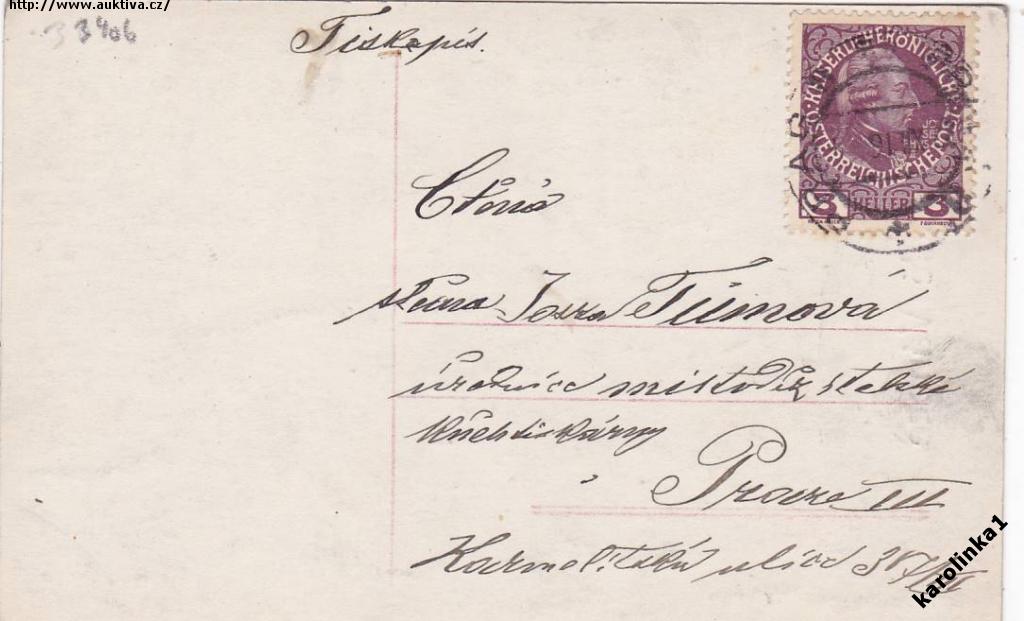 http://www.auktiva.cz/
33406
Tiskopis.
K.K. ÖSTERREICHISCHE POST
KAISERLICHE KÖNIGLICHE
JOSEF II
3 HELLER 3
Ctěná
slečna Tůmová
úřednice místodržitelské
knihtiskárny
Praze III
Karmelitská ulice
karolinka1